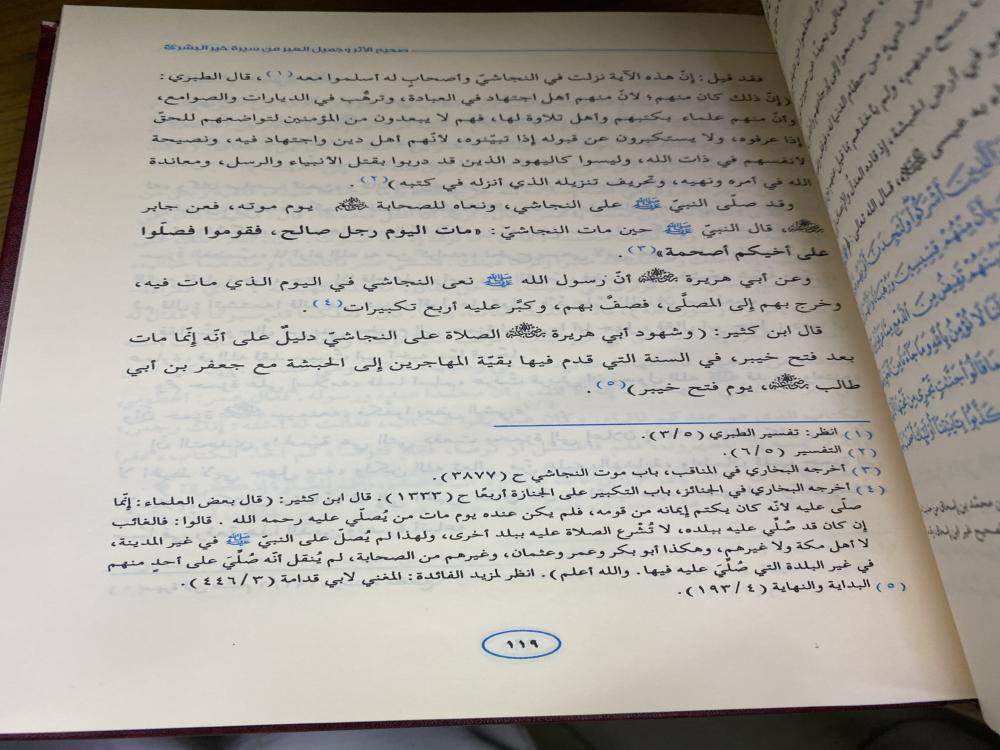 صحيح الأثر وجميل العبر من سيرة خير البشر ﷺ
فقد قيل: إنّ هذه الآية نزلت في النجاشيّ وأصحابٍ له أسلموا معه (١)، قال الطبري:
(إنّ ذلك كان منهم؛ لأنّ منهم أهل اجتهاد في العبادة، وترهُّب في الديارات والصوامع،
وأنّ منهم علماء بكتبهم وأهل تلاوة لها، فهم لا يبعدون من المؤمنين لتواضعهم للحقّ
إذا عرفوه، ولا يستكبرون عن قبوله إذا تبيّنوه، لأنّهم أهل دين واجتهاد فيه، ونصيحة
لأنفسهم في ذات الله، وليسوا كاليهود الذين قد دربوا بقتل الأنبياء والرسل، ومعاندة
الله في أمره ونهيه، وتحريف تنزيله الذي أنزله في كتبه) (٢).
وقد صلّى النبيّ ﷺ على النجاشي، ونعاه للصحابة ﵃ يوم موته، فعن جابر
﵁، قال النبيّ ﷺ حين مات النجاشيّ: «مات اليوم رجل صالح، فقوموا فصلّوا
على أخيكم أصحمة» (٣).
وعن أبي هريرة ﵁ أنّ رسول الله ﷺ نعى النجاشي في اليوم الذي مات فيه،
وخرج بهم إلى المصلّى، فصفَّ بهم، وكبّر عليه أربع تكبيرات (٤).
قال ابن كثير: (وشهود أبي هريرة ﵁ الصلاة على النجاشيّ دليلٌ على أنّه إنّما مات
بعد فتح خيبر، في السنة التي قدم فيها بقيّة المهاجرين إلى الحبشة مع جعفر بن أبي
طالب ﵁، يوم فتح خيبر) (٥).
(١) انظر: تفسير الطبري (٣/٥).
(٢) التفسير (٦/٥).
(٣) أخرجه البخاري في المناقب، باب موت النجاشي ح (٣٨٧٧).
(٤) أخرجه البخاري في الجنائز، باب التكبير على الجنازة أربعًا ح (١٣٣٣). قال ابن كثير: (قال بعض العلماء: إنّما
صلّى عليه لأنّه كان يكتم إيمانه من قومه، فلم يكن عنده يوم مات من يُصلّي عليه رحمه الله. قالوا: فالغائب
إن كان قد صُلّي عليه ببلده، لا تُشْرع الصلاة عليه ببلد أخرى، ولهذا لم يُصلَّ على النبيّ ﷺ في غير المدينة،
لا أهل مكة ولا غيرهم، وهكذا أبو بكر وعمر وعثمان، وغيرهم من الصحابة، لم يُنقل أنّه صُلّي على أحدٍ منهم
في غير البلدة التي صُلّيَ عليه فيها. والله أعلم). انظر لمزيد الفائدة: المغني لابي قدامة (٤٤٦/٣).
(٥) البداية والنهاية (١٩٣/٤).
١١٩